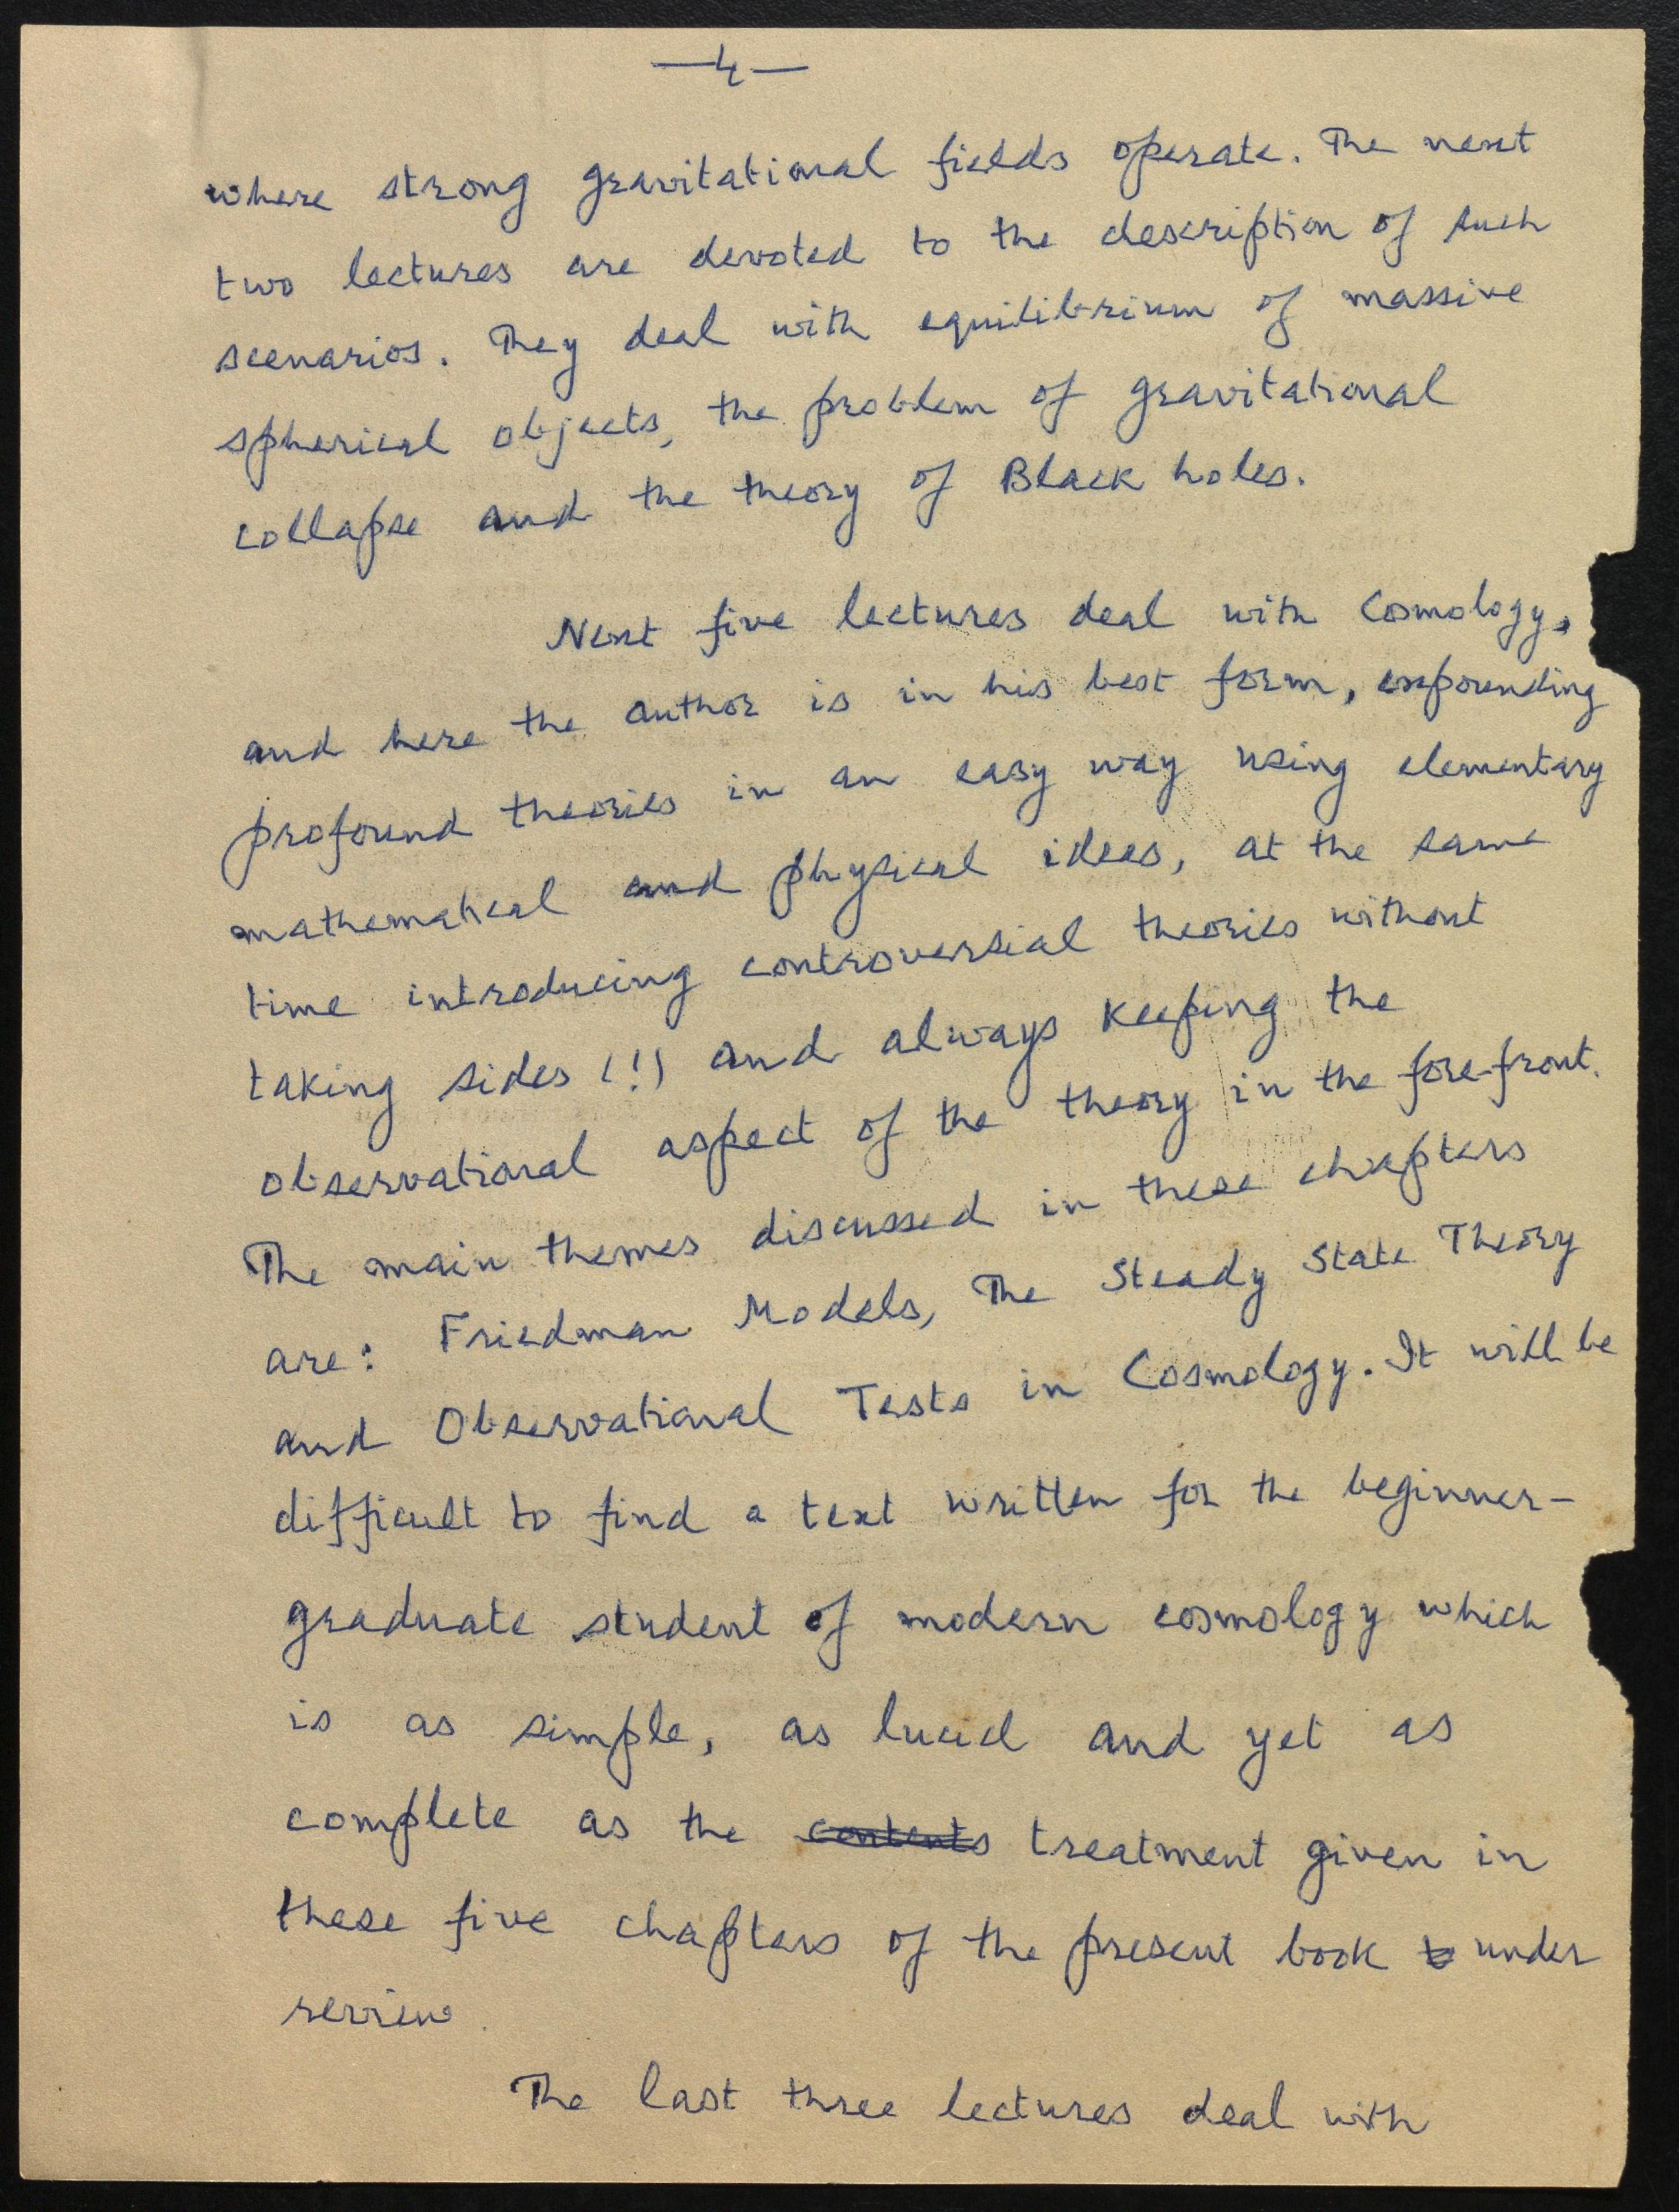 —4—
where strong gravitational fields operate. The next
two lectures are devoted to the description of such
scenarios. They deal with equilibrium of massive
spherical objects, the problem of gravitational
collapse and the theory of Black holes.
Next five lectures deal with Cosmology,
and here the author is in his best form, expounding
profound theories in an easy way using elementary
mathematical and physical ideas, at the same
time introducing controversial theories without
taking sides (!) and always keeping the
observational aspect of the theory in the fore-front.
The main themes discussed in these chapters
are: Friedman Models, The Steady State Theory
and Observational Tests in Cosmology. It will be
difficult to find a text written for the beginner-
graduate student of modern cosmology which
is as simple, as lucid and yet as
complete as the contents treatment given in
these five chapters of the present book under
review.
The last three lectures deal with